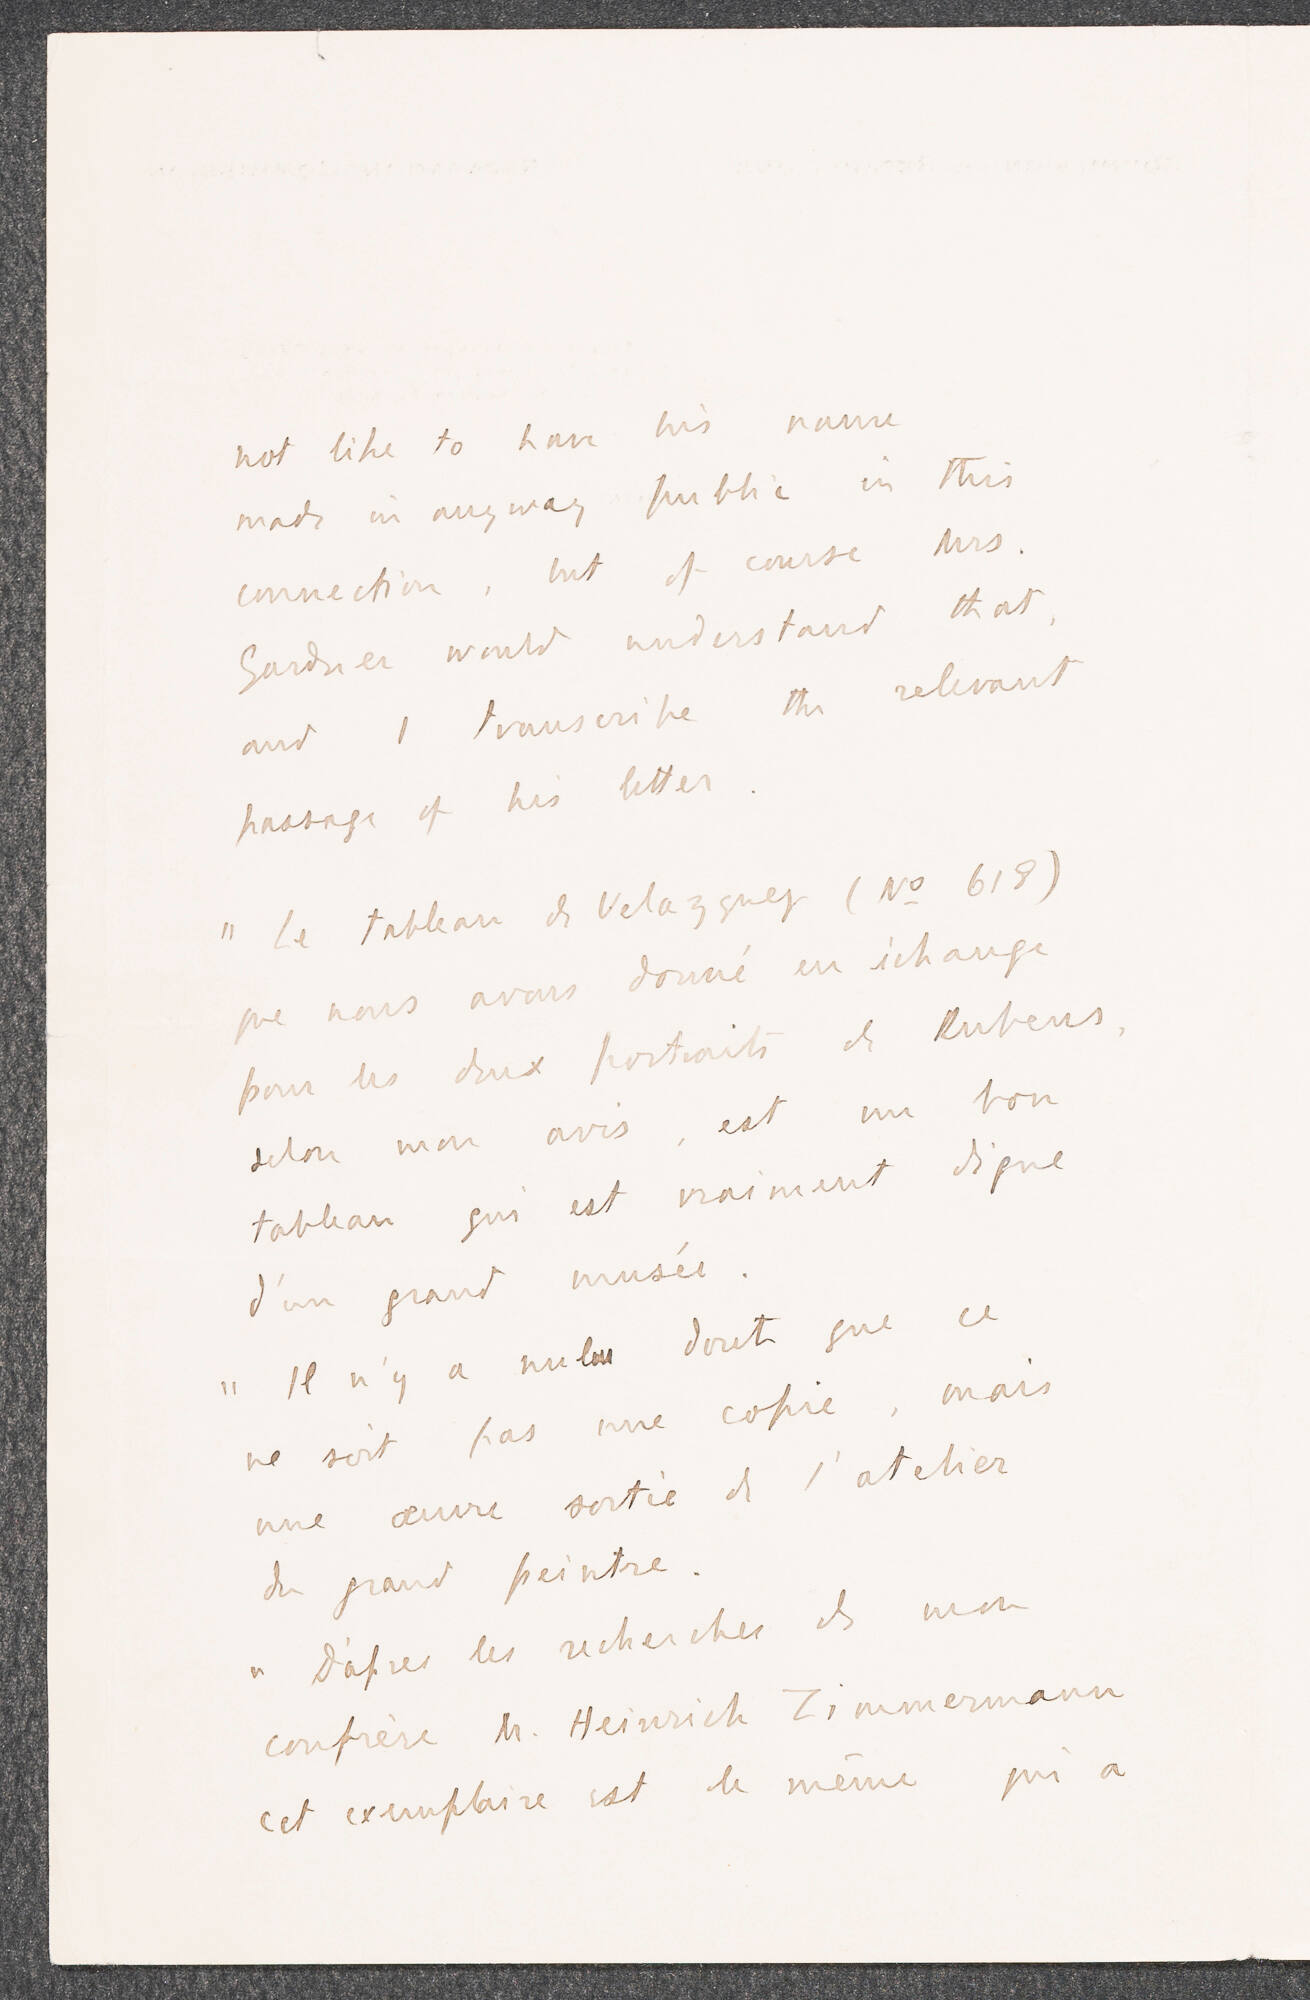 not like to have his name
made in anyway public in this
connection, but of course Mrs.
Gardner would understand that,
and I transcribe the relevant
passage of his letter.
" Le tableau de Velazquez (No 618)
que nous avons donné en échange
pour les deux portraits de Rubens,
selon mon avis, est un bon
tableau qui est vraiment digne
d'un grand musée.
" Il n'y a nul dout que ce
ne soit pas une copie, mais
une œuvre sortie de l'atelier
du grand peintre.
" D'apres les recherches de mon
confrère M. Heinrich Zimmermann
cet exemplaire est le même qui a